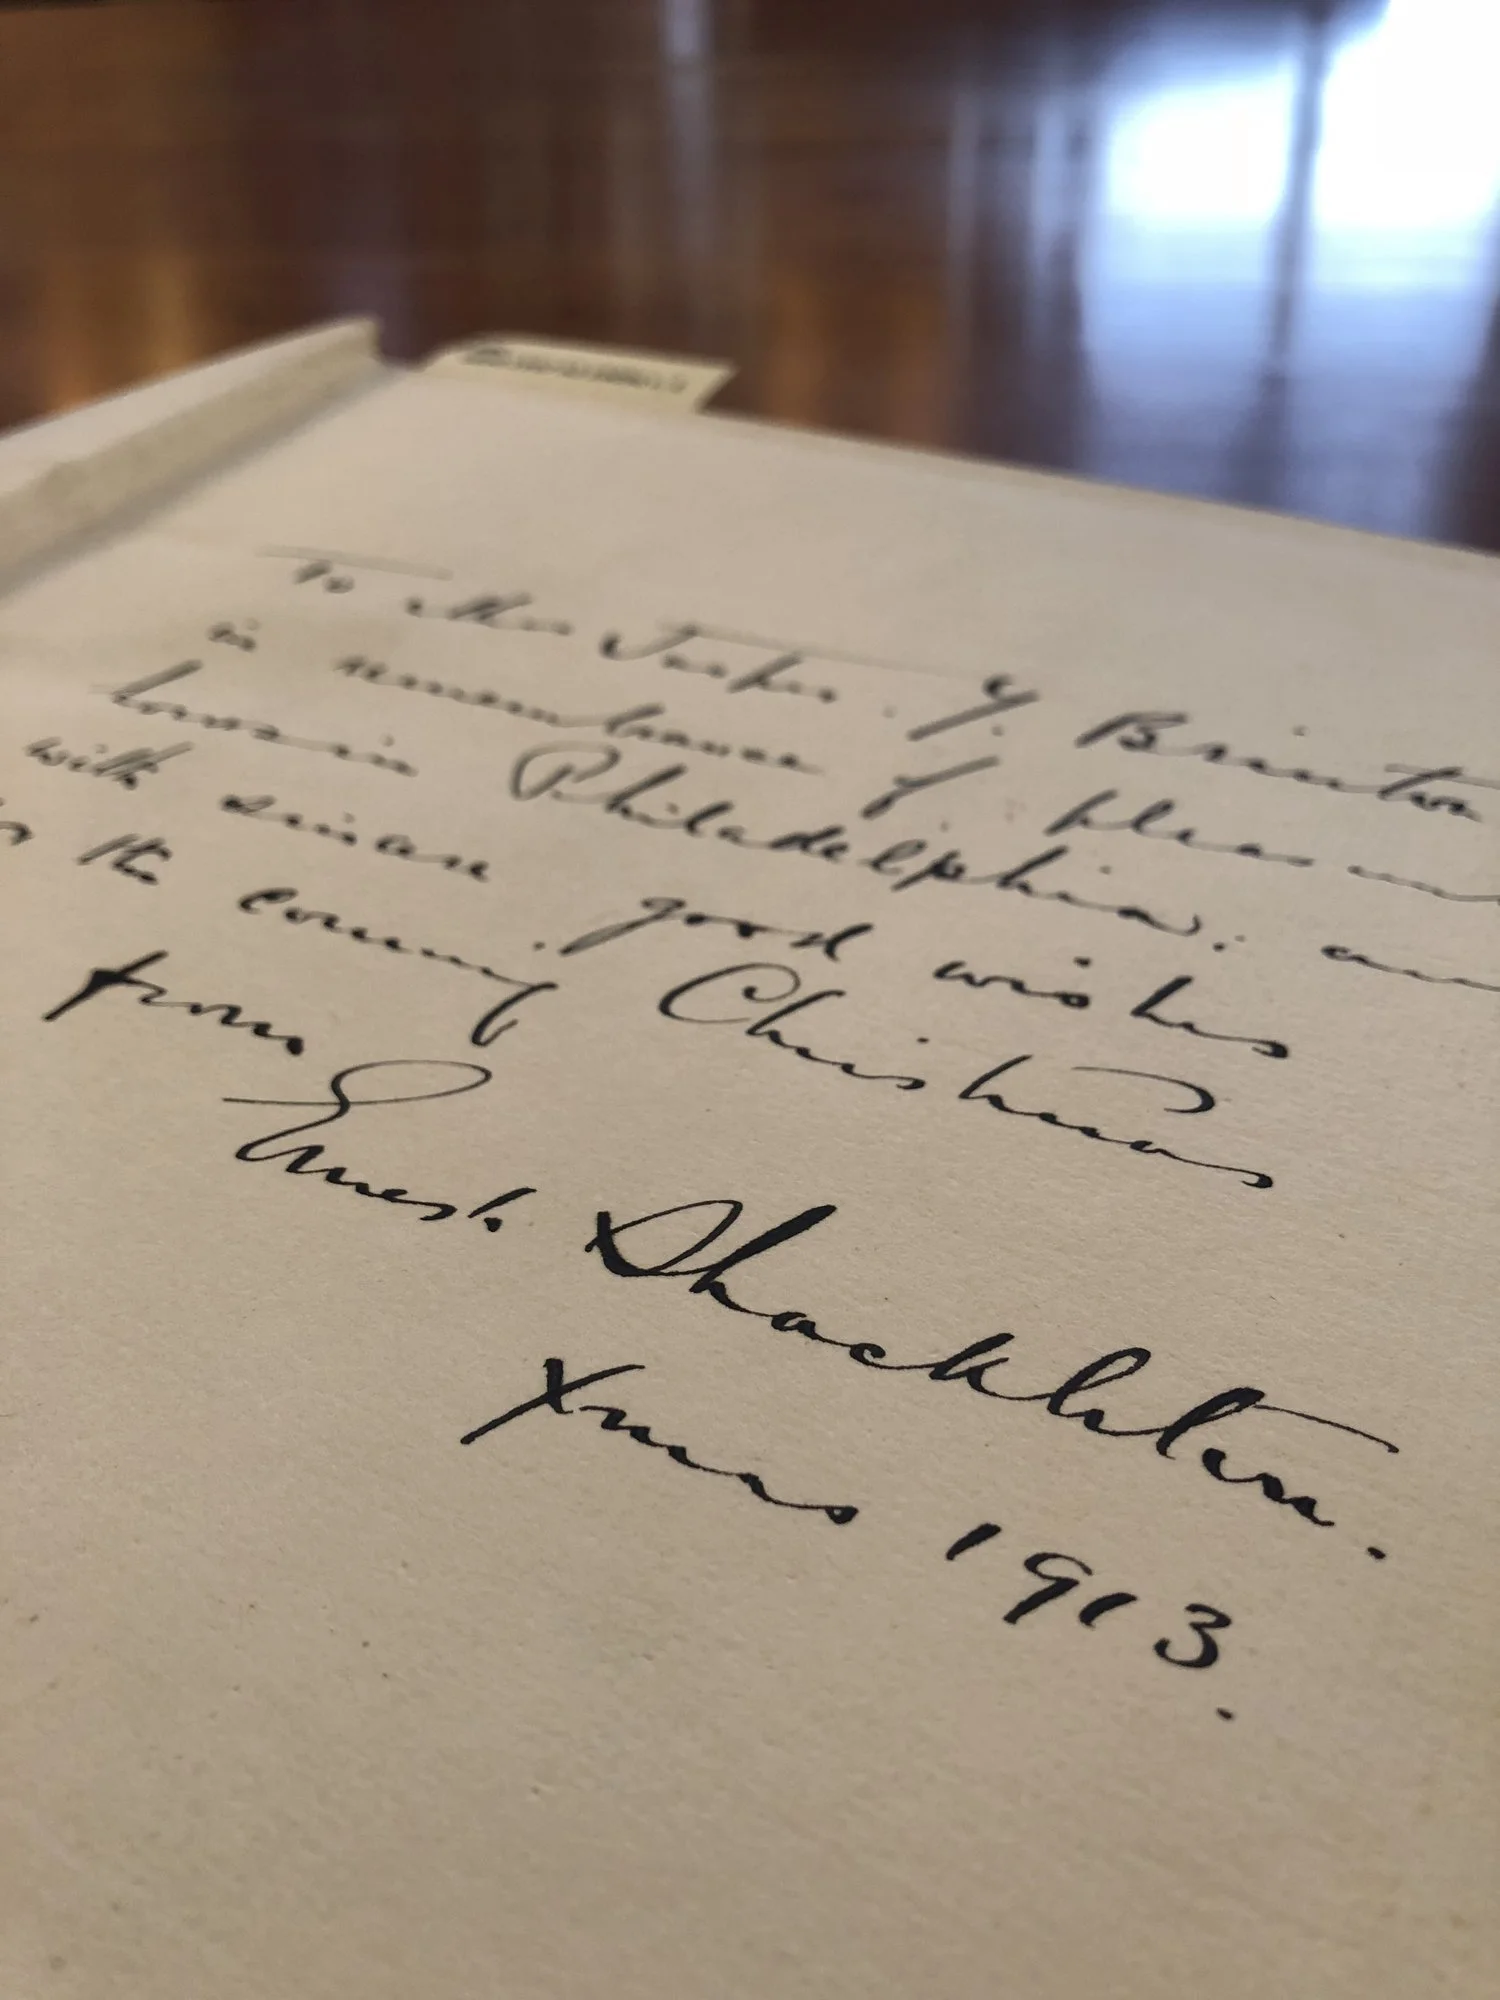 To Mrs Jasper Y. Brinton
in remembrance of pleasant
hours in Philadelphia. and
with sincere good wishes
for the coming Christmas
from
Ernest Shackleton.
Xmas 1913.